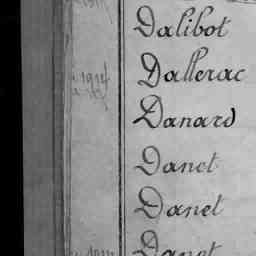 Dalibot
Dallerac
1914
Danard
Danet
Danet
Danet